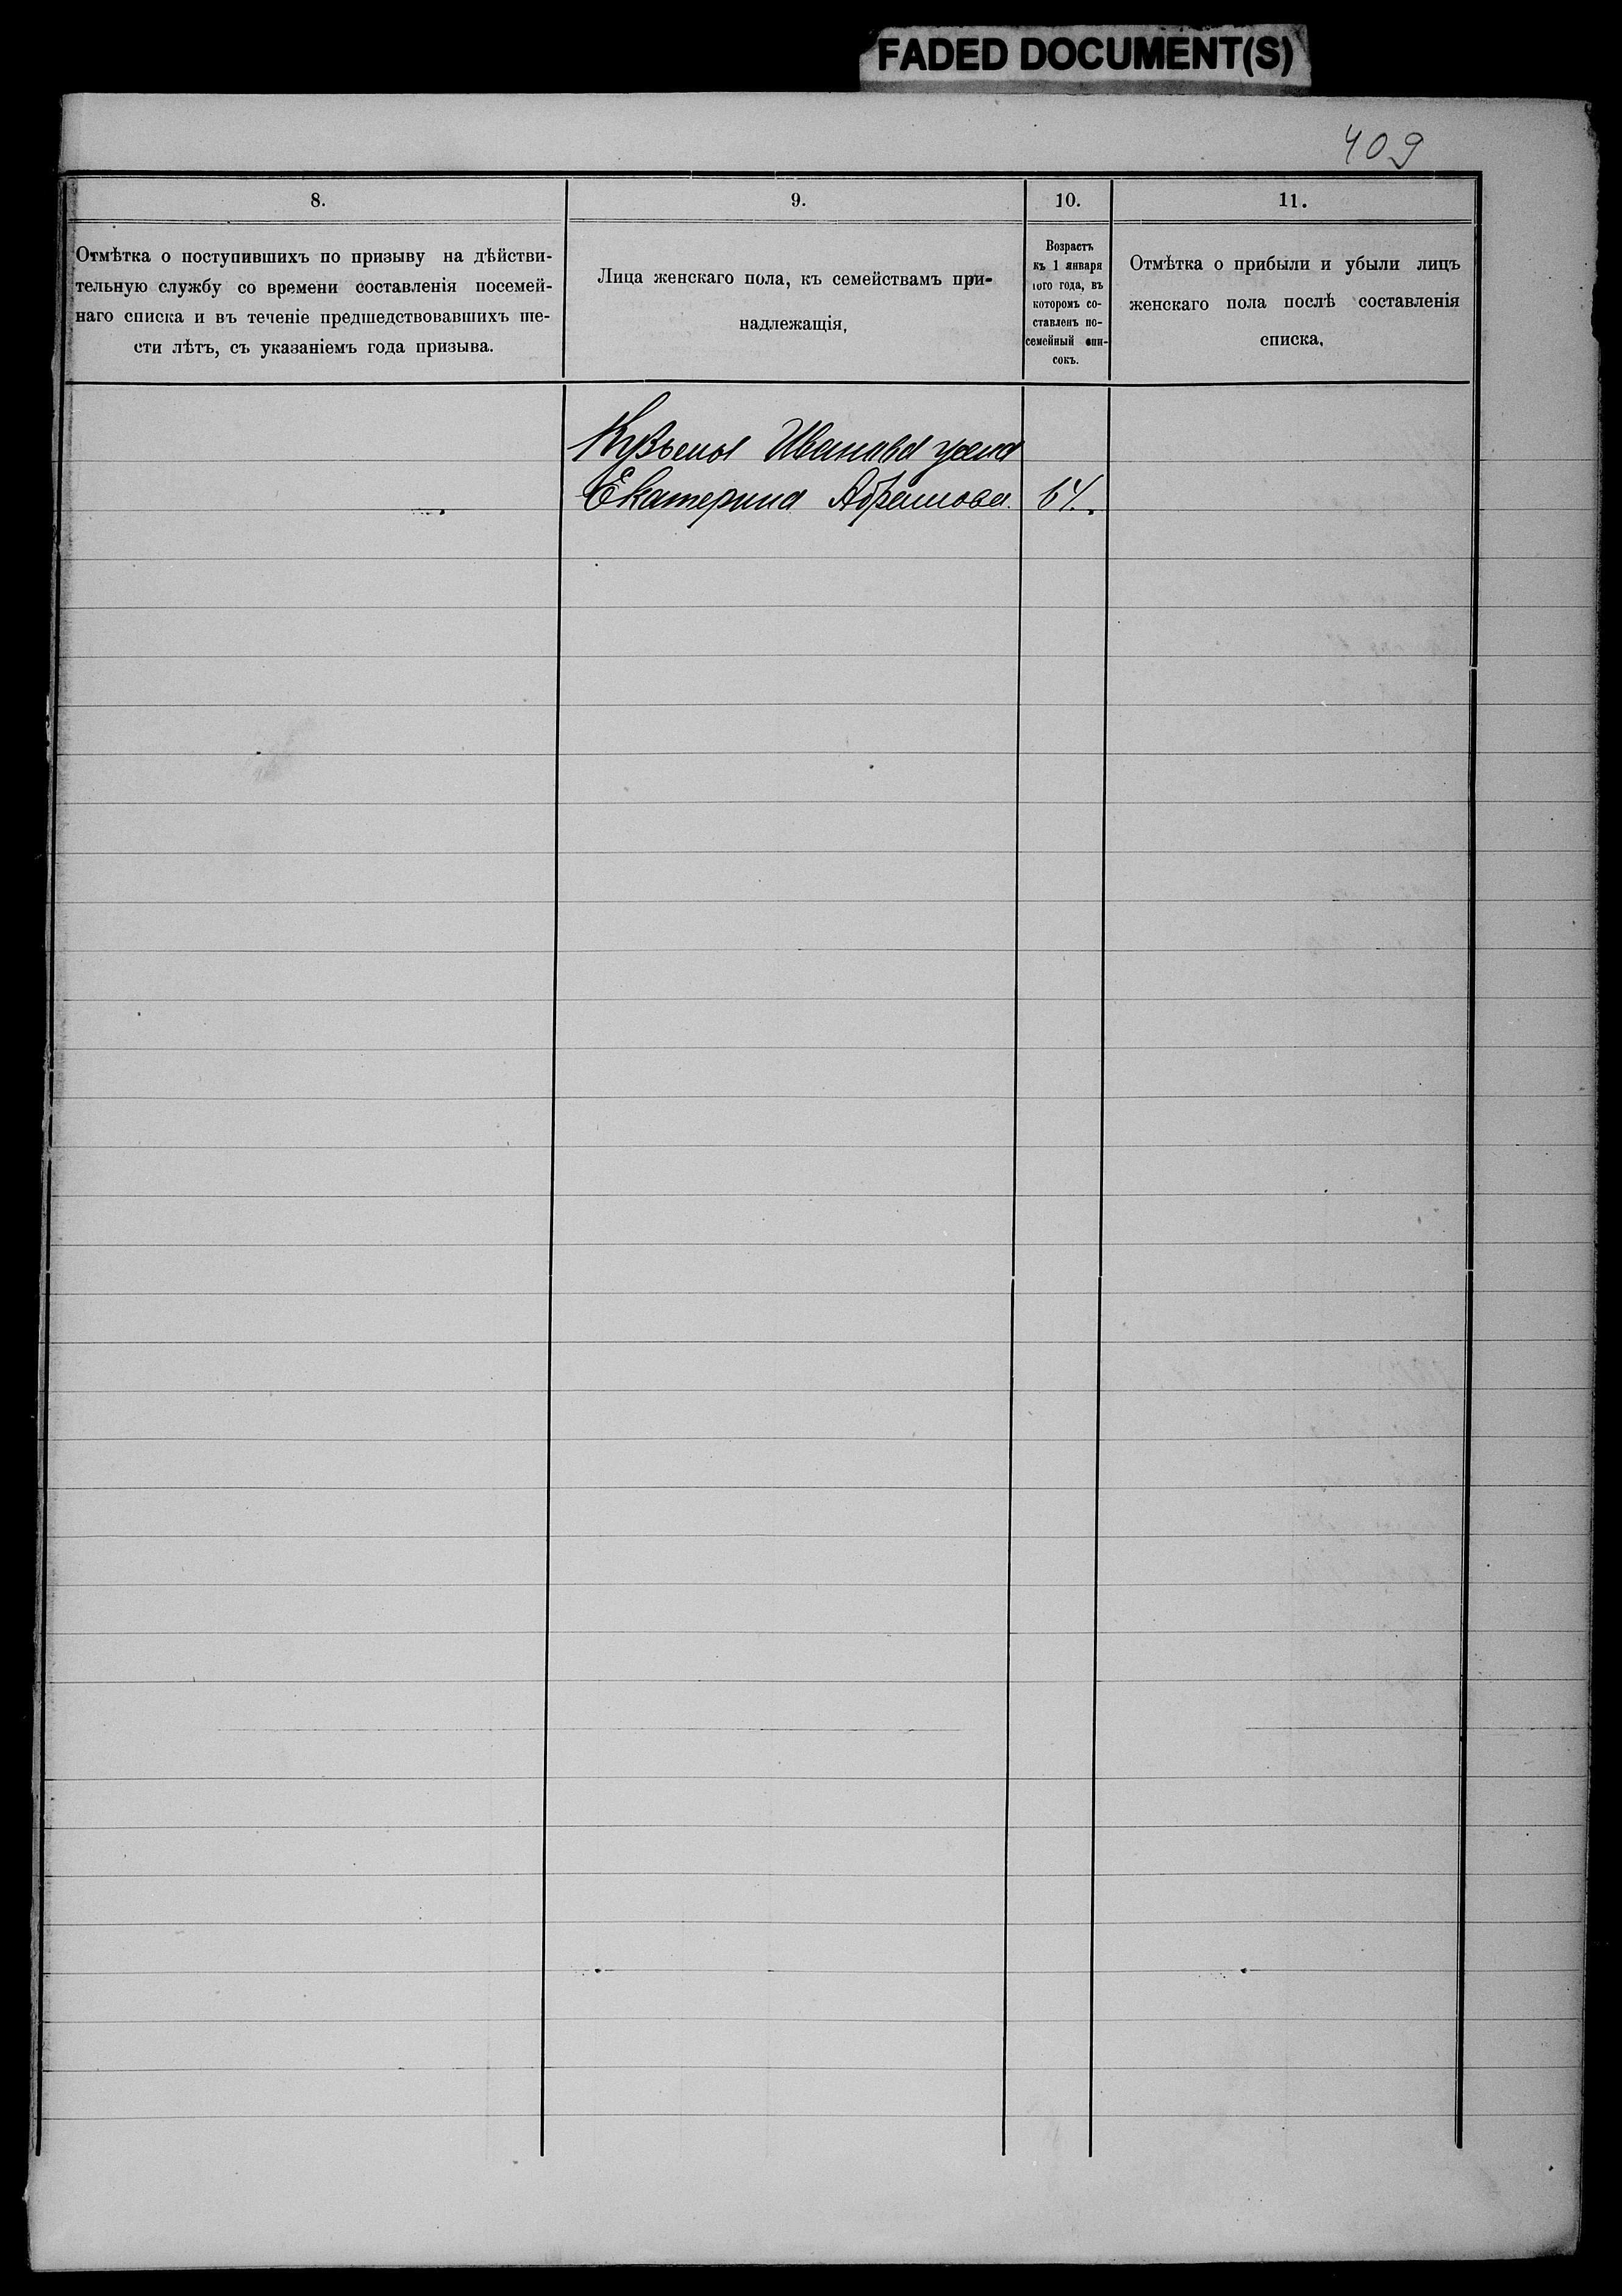 FADED DOCUMENT(S)
409
8.
Отмѣтка о поступившихъ по призыву на дѣйстви-
тельную службу со времени составленія посемей-
наго списка и въ теченіе предшедствовавшихъ ше-
сти лѣтъ, съ указаніемъ года призыва.
9.
Лица женскаго пола, къ семействамъ при-
надлежащія,
10.
Возрастъ
къ 1 января
того года, въ
которомъ со-
ставленъ по-
семейный спи-
сокъ.
11.
Отмѣтка о прибыли и убыли лицъ
женскаго пола послѣ составленія
списка,
Кузьмы Иванова жена
Екатерина Абрамова. 64.